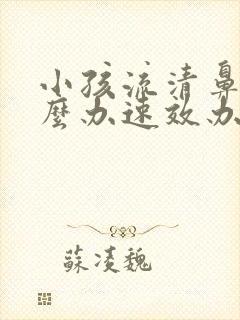 小孩流清鼻
麽办速效办
蘇凌魏